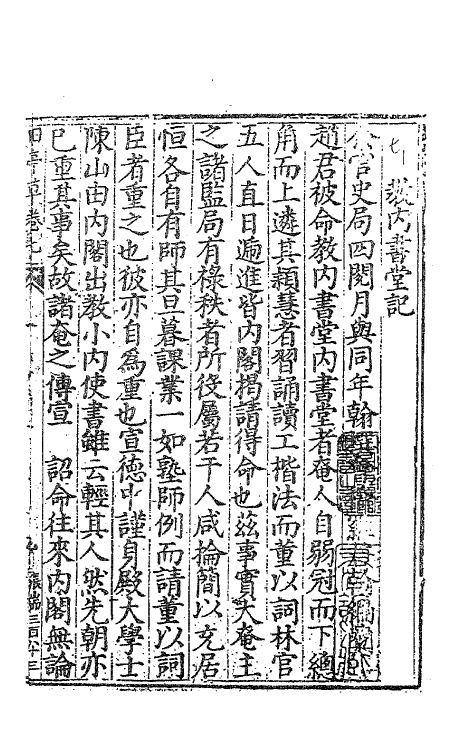 教內書堂記
官史局四閱月與同年翰
趙君被命教內書堂內書堂者奄人自弱冠而下總
角而上遴其穎慧者習誦讀工楷法而董以詞林官
五人直日遍進皆內閣揭請得命也茲事實大奄主
之諸監局有祿秩者所役屬若干人咸掄簡以充居
恒各自有師其旦暮課業一如塾師例而請董以詞
臣者重之也彼亦自為重也宣德中謹身殿大學士
陳山由內閣出教小內使書雖云輕其人然先朝亦
已重其事矣故諸奄之傳宣 詔命往來內閣無論
四亭草卷七